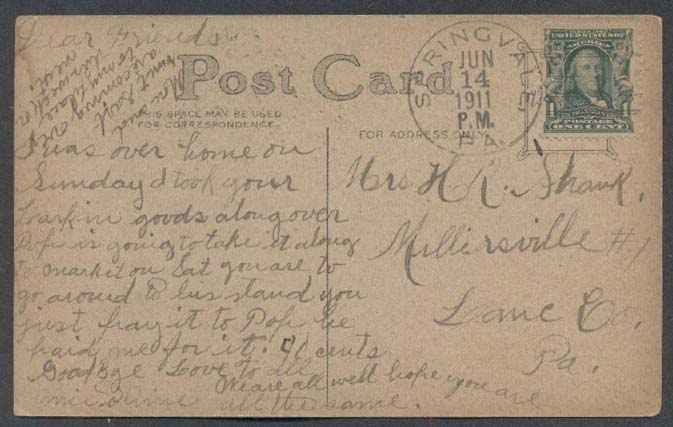 Dear Friends
Post Card
THIS SPACE MAY BE USED
FOR CORRESPONDENCE.
FOR ADDRESS ONLY
SPRINGVALE,
JUN
14
1911
P.M.
PA.
UNITED STATES OF AMERICA
1 1
POSTAGE
ONE CENT
I was over home on
Sunday & took your
goods along over
Pop is going to take it along
to market on Sat you are to
go around to his stand you
just pay it to Pop he
paid me for it. cents
Good Bye Love to all
We are all well hope you are
all the same.
Mrs H. R. Shank,
Millersville #1
Lanc Co.
Pa.